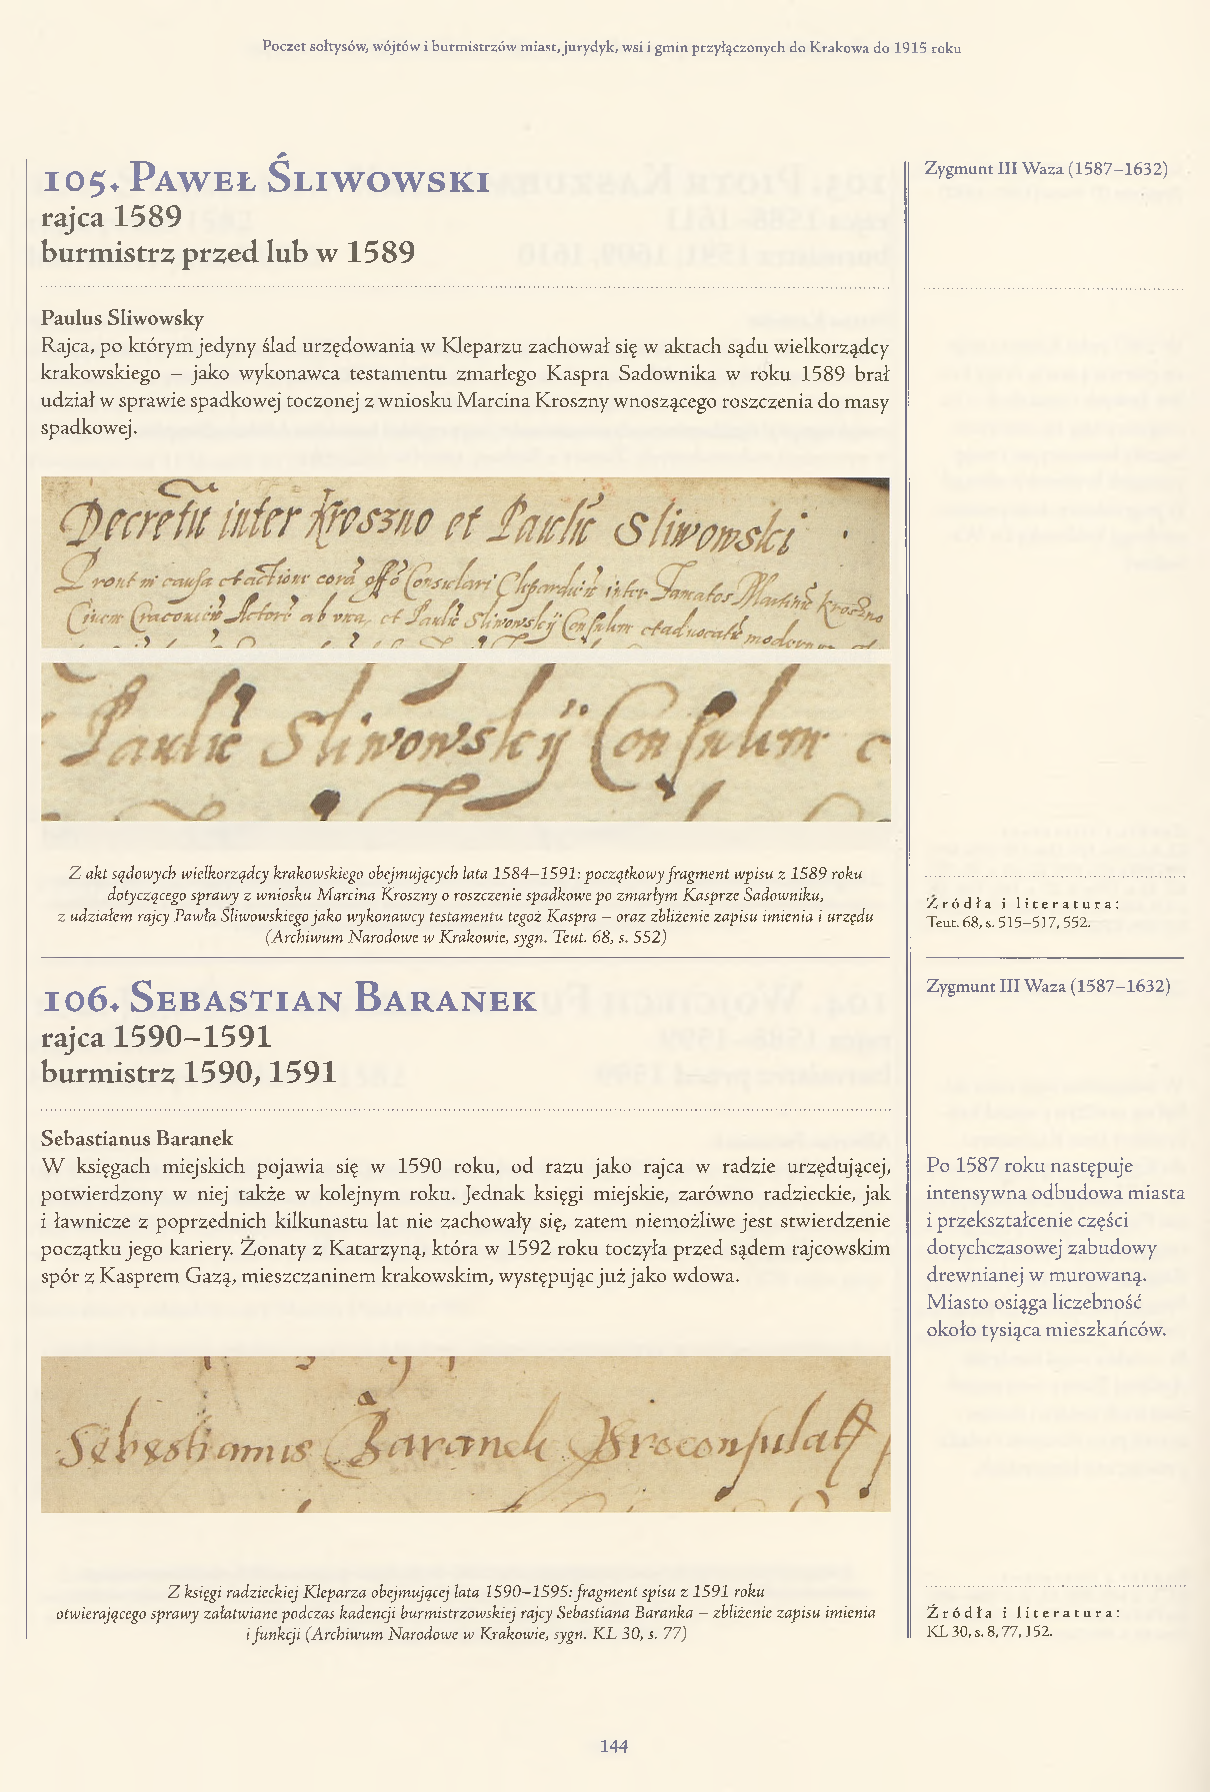 Poczet sołtysów, wójtów i burmistrzów miast, jurydyk, wsi i gmin przyłączonych do Krakowa do 1915 roku
105. Paweł Śliwowski
rajca 1589
burmistrz przed lub w 1589
Zygmunt III Waza (1587–1632)
Paulus Sliwowsky
Rajca, po którym jedyny ślad urzędowania w Kleparzu zachował się w aktach sądu wielkorządcy
krakowskiego – jako wykonawca testamentu zmarłego Kaspra Sadownika w roku 1589 brał
udział w sprawie spadkowej toczonej z wniosku Marcina Kroszny wnoszącego roszczenia do masy
spadkowej.
Decretū inter Kroszno et Paulū Sliwowski
Paulū Sliwowskij Consulem
Z akt sądowych wielkorządcy krakowskiego obejmujących lata 1584–1591: początkowy fragment wpisu z 1589 roku
dotyczącego sprawy z wniosku Marcina Kroszny o roszczenie spadkowe po zmarłym Kasprze Sadowniku,
z udziałem rajcy Pawła Śliwowskiego jako wykonawcy testamentu tegoż Kaspra – oraz zbliżenie zapisu imienia i urzędu
(Archiwum Narodowe w Krakowie, sygn. Teut. 68, s. 552)
Źródła i literatura:
Teut. 68, s. 515–517, 552.
106. Sebastian Baranek
rajca 1590–1591
burmistrz 1590, 1591
Zygmunt III Waza (1587–1632)
Sebastianus Baranek
W księgach miejskich pojawia się w 1590 roku, od razu jako rajca w radzie urzędującej,
potwierdzony w niej także w kolejnym roku. Jednak księgi miejskie, zarówno radzieckie, jak
i ławnicze z poprzednich kilkunastu lat nie zachowały się, zatem niemożliwe jest stwierdzenie
początku jego kariery. Żonaty z Katarzyną, która w 1592 roku toczyła przed sądem rajcowskim
spór z Kasprem Gazą, mieszczaninem krakowskim, występując już jako wdowa.
Po 1587 roku następuje
intensywna odbudowa miasta
i przekształcenie części
dotychczasowej zabudowy
drewnianej w murowaną.
Miasto osiąga liczebność
około tysiąca mieszkańców.
Sebastianus Baranek
Z księgi radzieckiej Kleparza obejmującej lata 1590–1595: fragment spisu z 1591 roku
otwierającego sprawy załatwiane podczas kadencji burmistrzowskiej rajcy Sebastiana Baranka – zbliżenie zapisu imienia
i funkcji (Archiwum Narodowe w Krakowie, sygn. KL 30, s. 77)
Źródła i literatura:
KL 30, s. 8, 77, 152.
144